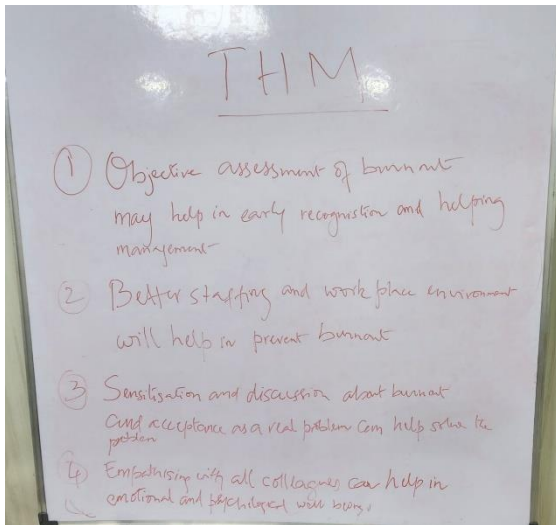 THM
① Objective assessment of burnout
may help in early recognistion and helping
management
② Better staffing and work place environment
will help in prevent burnout
③ Sensitisation and discussion about burnout
and acceptance as a real problem can help solve the
problem
④ Empathising with all colleagues can help in
emotional and psychological well being.